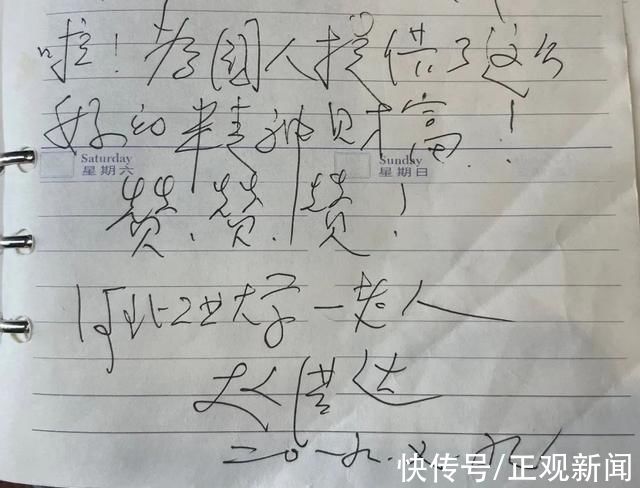 啦！为国人提供了这么
好的精神财富！！
Saturday
星期六
Sunday
星期日
赞、赞、赞！
河北工业大学一老人
二0一九.
快传号/正观新闻